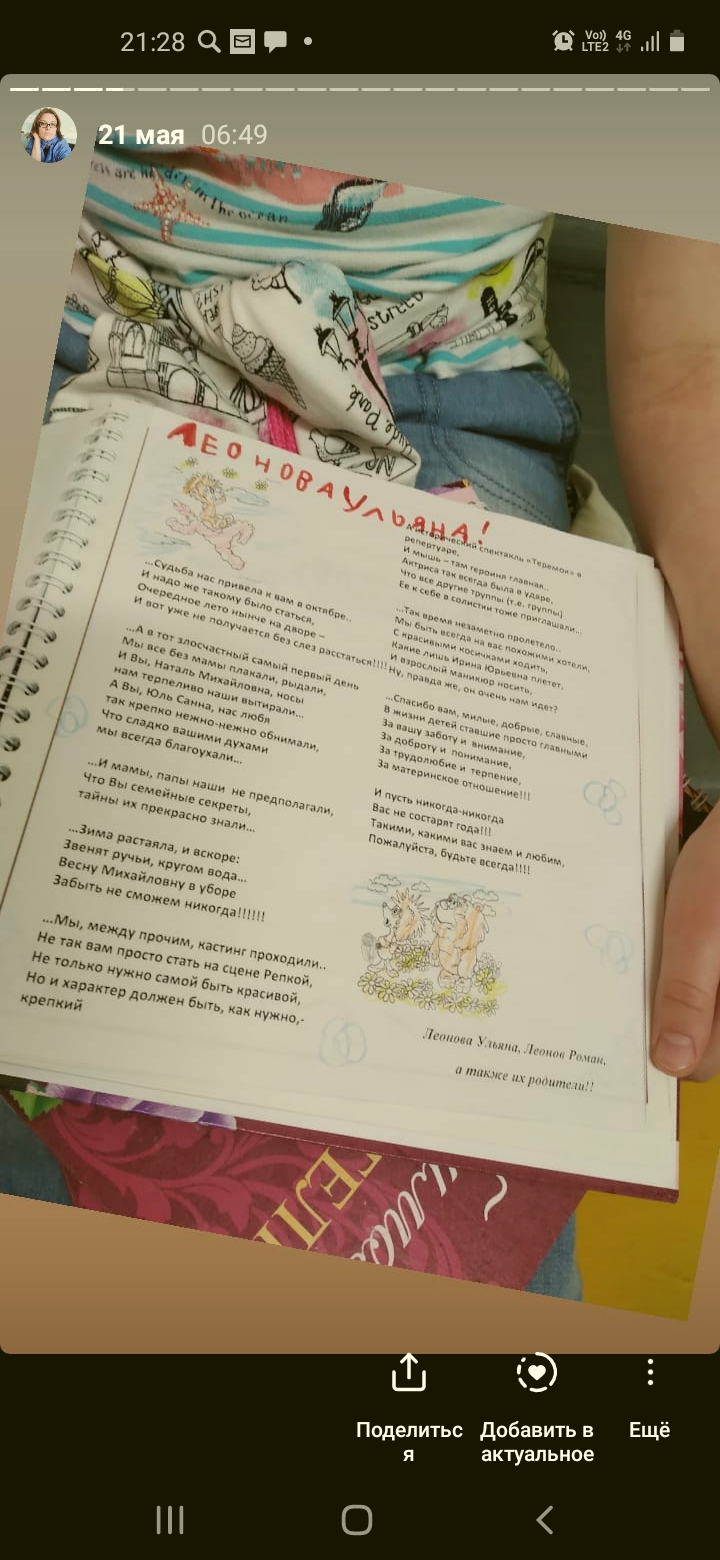 21:28
Vo))
LTE2
4G
21 мая 06:49
in the ocean
street
Hyde Park
ЛЕОНОВА УЛЬЯНА!
...Судьба нас привела к вам в октябре..
И надо же такому было статься,
Очередное лето нынче на дворе –
И вот уже не получается без слез расстаться!!!!
...А в тот злосчастный самый первый день
Мы все без мамы плакали, рыдали,
И Вы, Наталь Михайловна, носы
нам терпеливо наши вытирали...
А Вы, Юль Санна, нас любя
так крепко нежно-нежно обнимали,
Что сладко вашими духами
мы всегда благоухали...
...И мамы, папы наши не предполагали,
Что Вы семейные секреты,
тайны их прекрасно знали...
...Зима растаяла, и вскоре:
Звенят ручьи, кругом вода...
Весну Михайловну в уборе
Забыть не сможем никогда!!!!!!
...Мы, между прочим, кастинг проходили..
Не так вам просто стать на сцене Репкой,
Не только нужно самой быть красивой,
Но и характер должен быть, как нужно,-
крепкий
А исторический спектакль «Теремок» в
репертуаре,
И мышь – там героиня главная..
Актриса так всегда была в ударе,
Что все другие труппы (т.е. группы)
Ее к себе в солистки тоже приглашали...
...Так время незаметно пролетело..
Мы быть всегда на вас похожими хотели,
С красивыми косичками ходить,
Какие лишь Ирина Юрьевна плетет,
И взрослый маникюр носить,
Ну, правда же, он очень нам идет?
...Спасибо вам, милые, добрые, славные,
В жизни детей ставшие просто главными
За вашу заботу и внимание,
За доброту и понимание,
За трудолюбие и терпение,
За материнское отношение!!!
И пусть никогда-никогда
Вас не состарят года!!!
Такими, какими вас знаем и любим,
Пожалуйста, будьте всегда!!!!
Леонова Ульяна, Леонов Роман,
а также их родители!!
Поделитьс
я
Добавить в
актуальное
Ещё